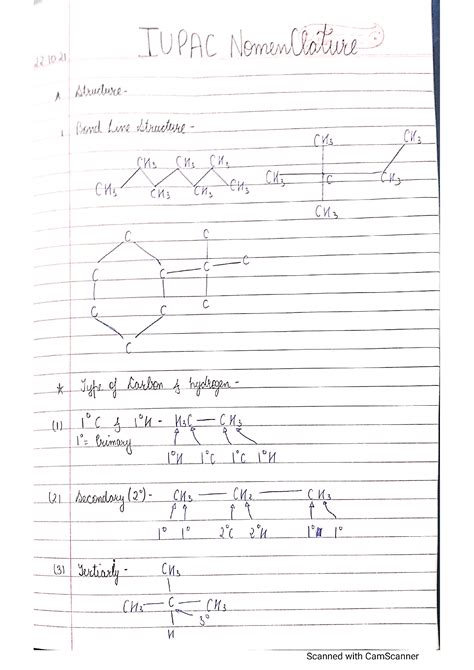 22.10.21
IUPAC NomenClature
A Structure -
1. Bond Line Structure -
CH3 CH3 CH3 CH3 CH3
CH3 CH3 CH3 CH3 CH3 C CH3
CH3
C C
C C C C
C C C
C
* Type of Carbon & hydrogen -
(1) 1°C & 1°H - H3C — CH3
1° = Primary
1°H 1°C 1°C 1°H
(2) Secondary (2°) - CH3 — CH2 — CH3
1° 1° 2°C 2°H 1° 1°
(3) Tertiary - CH3
CH3 — C — CH3
3°
H
Scanned with CamScanner